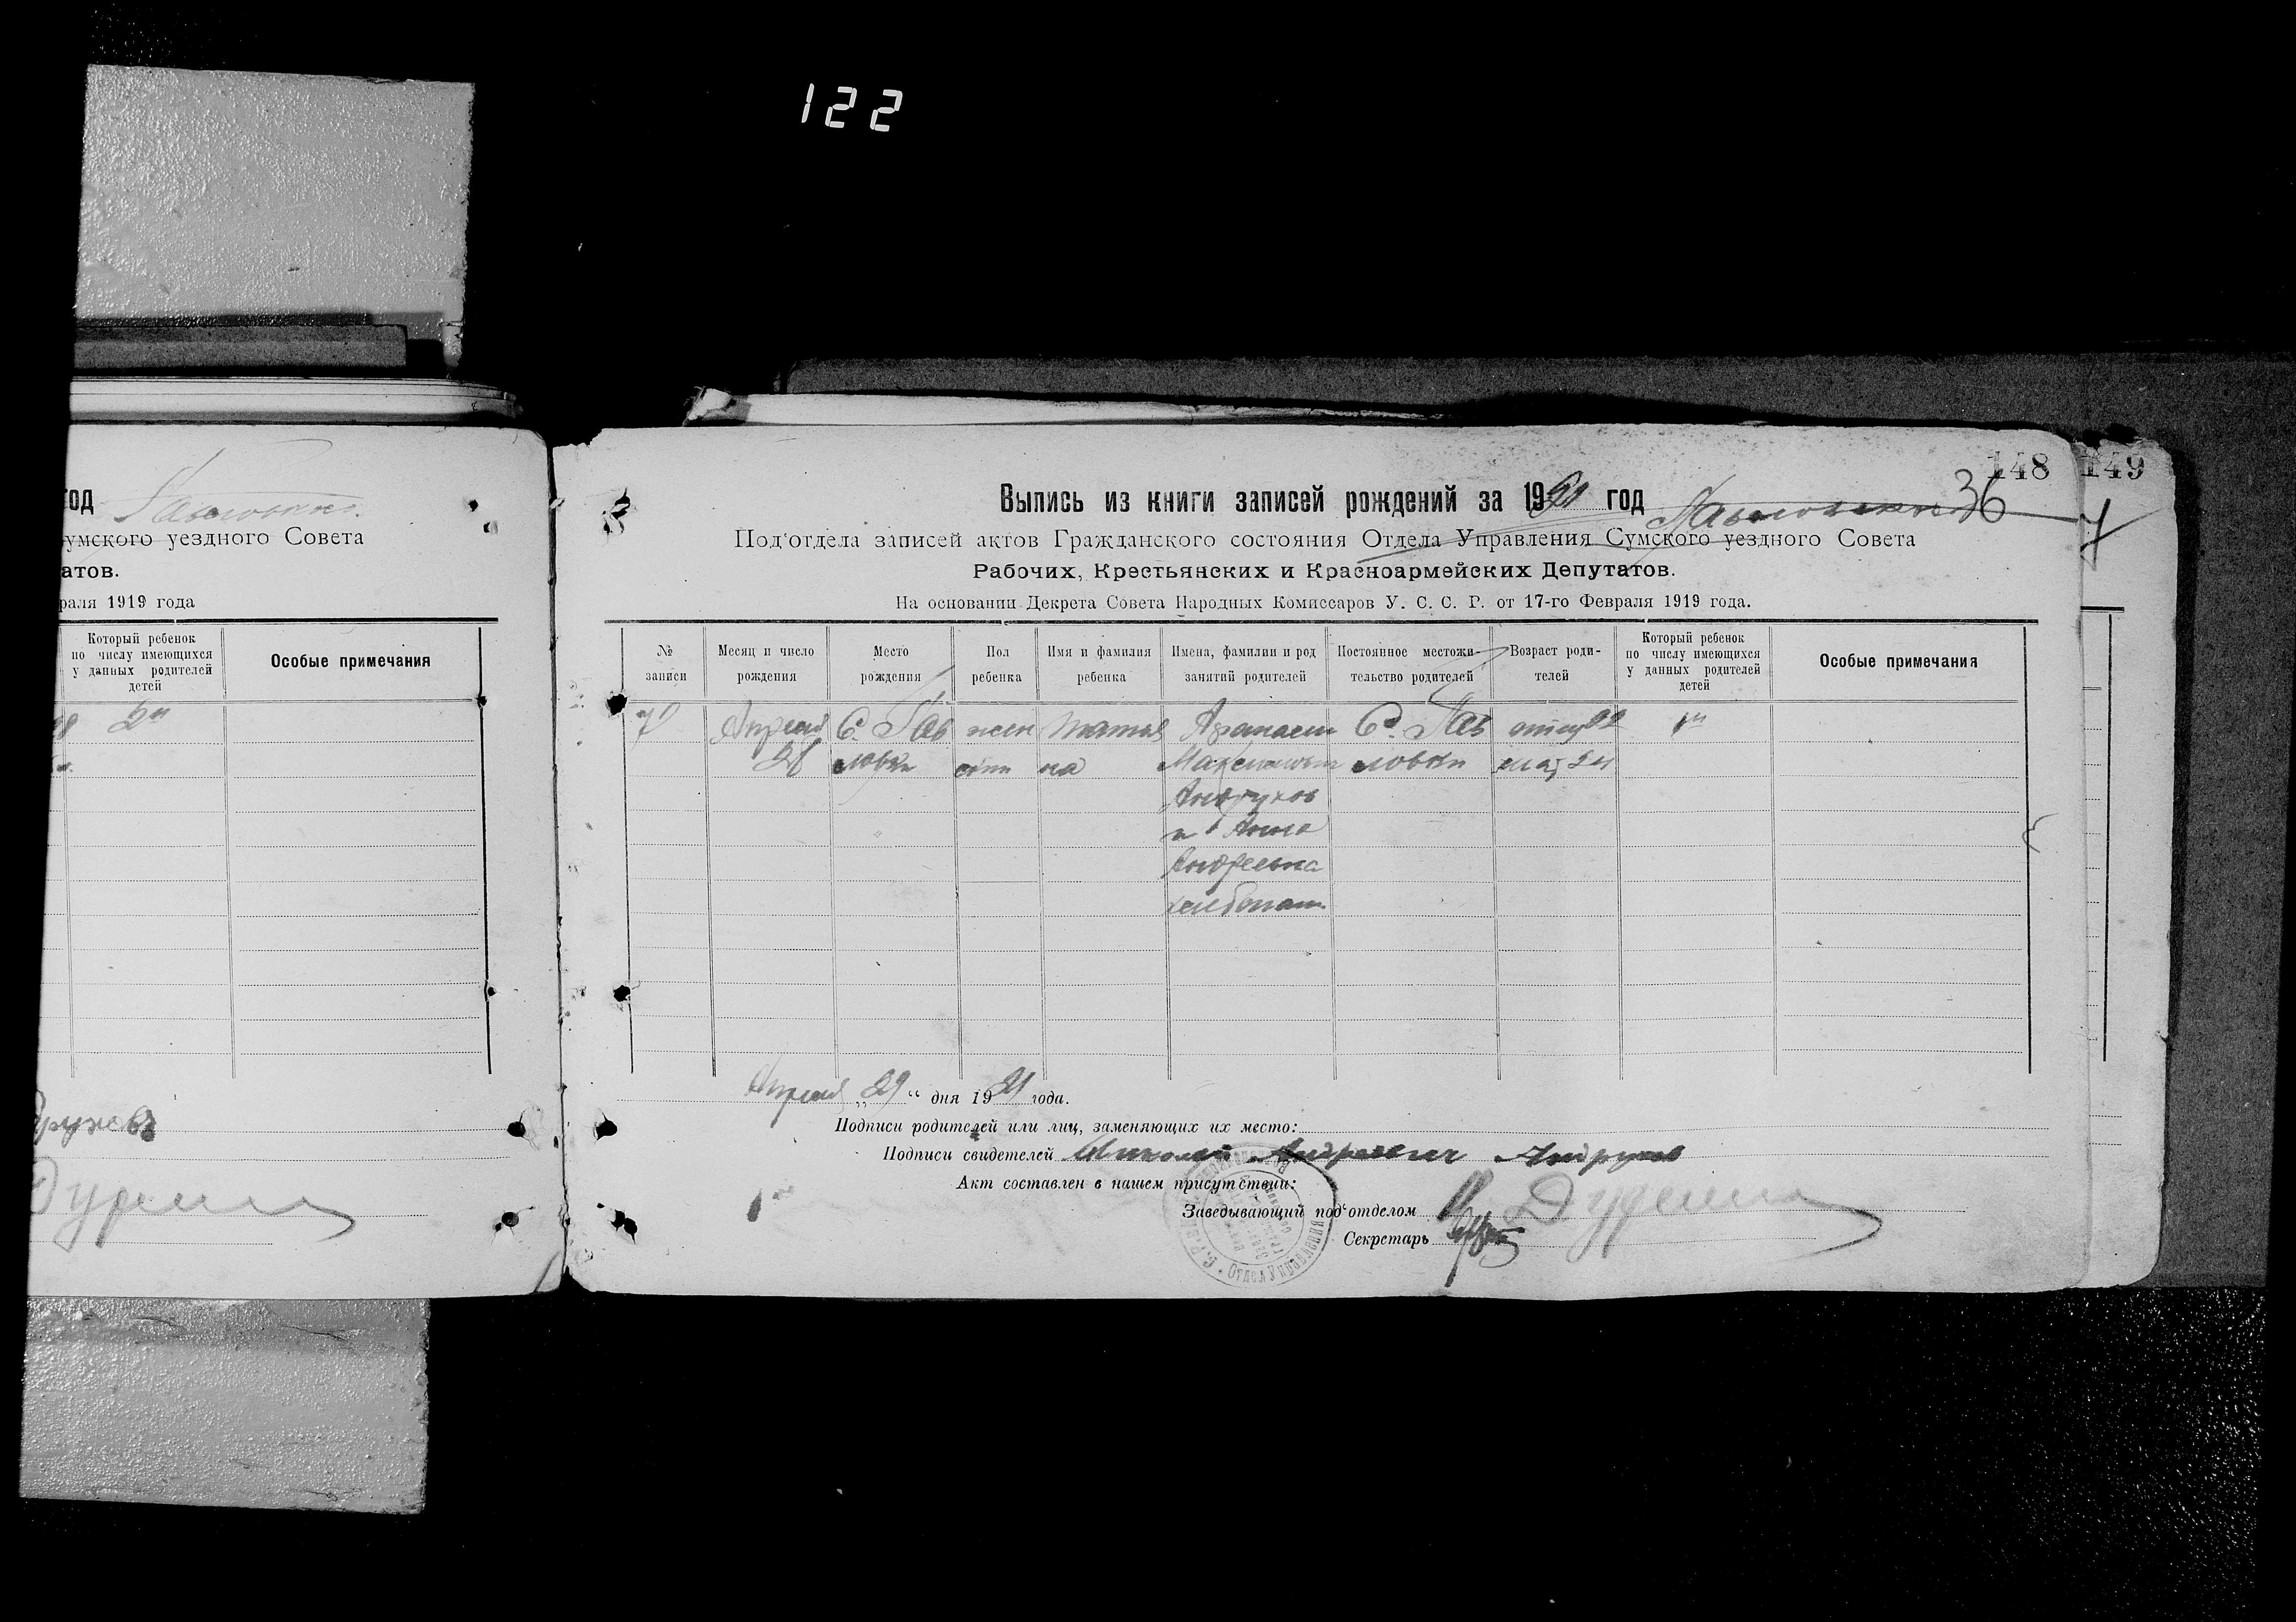 122
год
Сумского уездного Совета
атов.
раля 1919 года
Который ребенок
по числу имеющихся
у данных родителей
детей
Особые примечания
2й
148
149
36
Выпись из книги записей рождений за 1921 год
Под‘отдела записей актов Гражданского состояния Отдела Управления Сумского уездного Совета
Рабочих, Крестьянских и Красноармейских Депутатов.
На основании Декрета Совета Народных Комиссаров У. С. С. Р. от 17-го Февраля 1919 года.
№ записи
Месяц и число рождения
Место рождения
Пол ребенка
Имя и фамилия ребенка
Имена, фамилии и род занятий родителей
Постоянное местожительство родителей
Возраст родителей
Который ребенок по числу имеющихся у данных родителей детей
Особые примечания
Апреля С. Пав жен Татья Афанасий С. Пав отцу 22 1й
28 ловки ский на Максимович ловки мат 24
Андрухов
и Анна
Андреевна
хлебопаш.
Апреля „29“ дня 1921 года.
Подписи родителей или лиц, заменяющих их место:
Подписи свидетелей Николай Андреевич Андрухов
Акт составлен в нашем присутствии:
Заведывающий под‘отделом
Секретарь
Отдел Управления